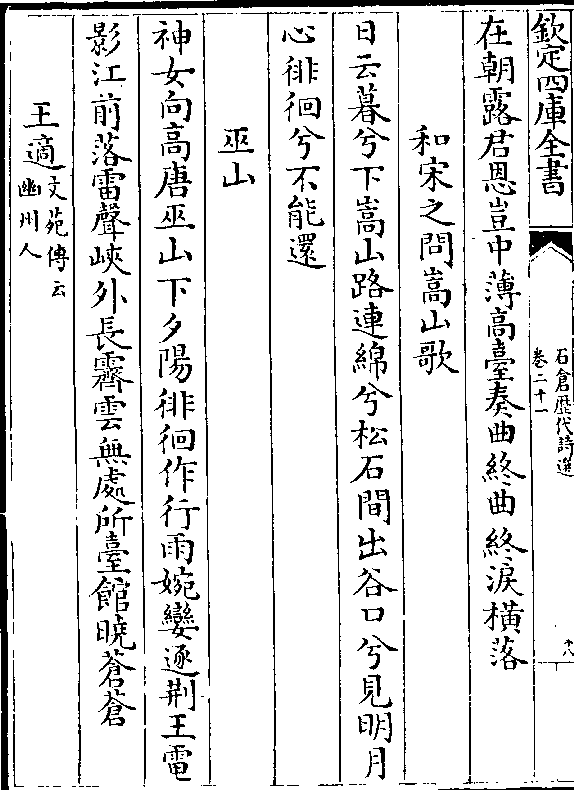 欽定四庫全書
石倉歴代詩選
卷二十一
十八
在朝露君恩豈中薄高臺奏曲終曲終淚橫落
和宋之問嵩山歌
日云暮兮下嵩山路連綿兮松石間出谷口兮見明月
心徘徊兮不能還
巫山
神女向高唐巫山下夕陽徘徊作行雨婉孌逐荆王電
影江前落雷聲峽外長霽雲無處所臺館曉蒼蒼
王適文苑傳云
幽州人